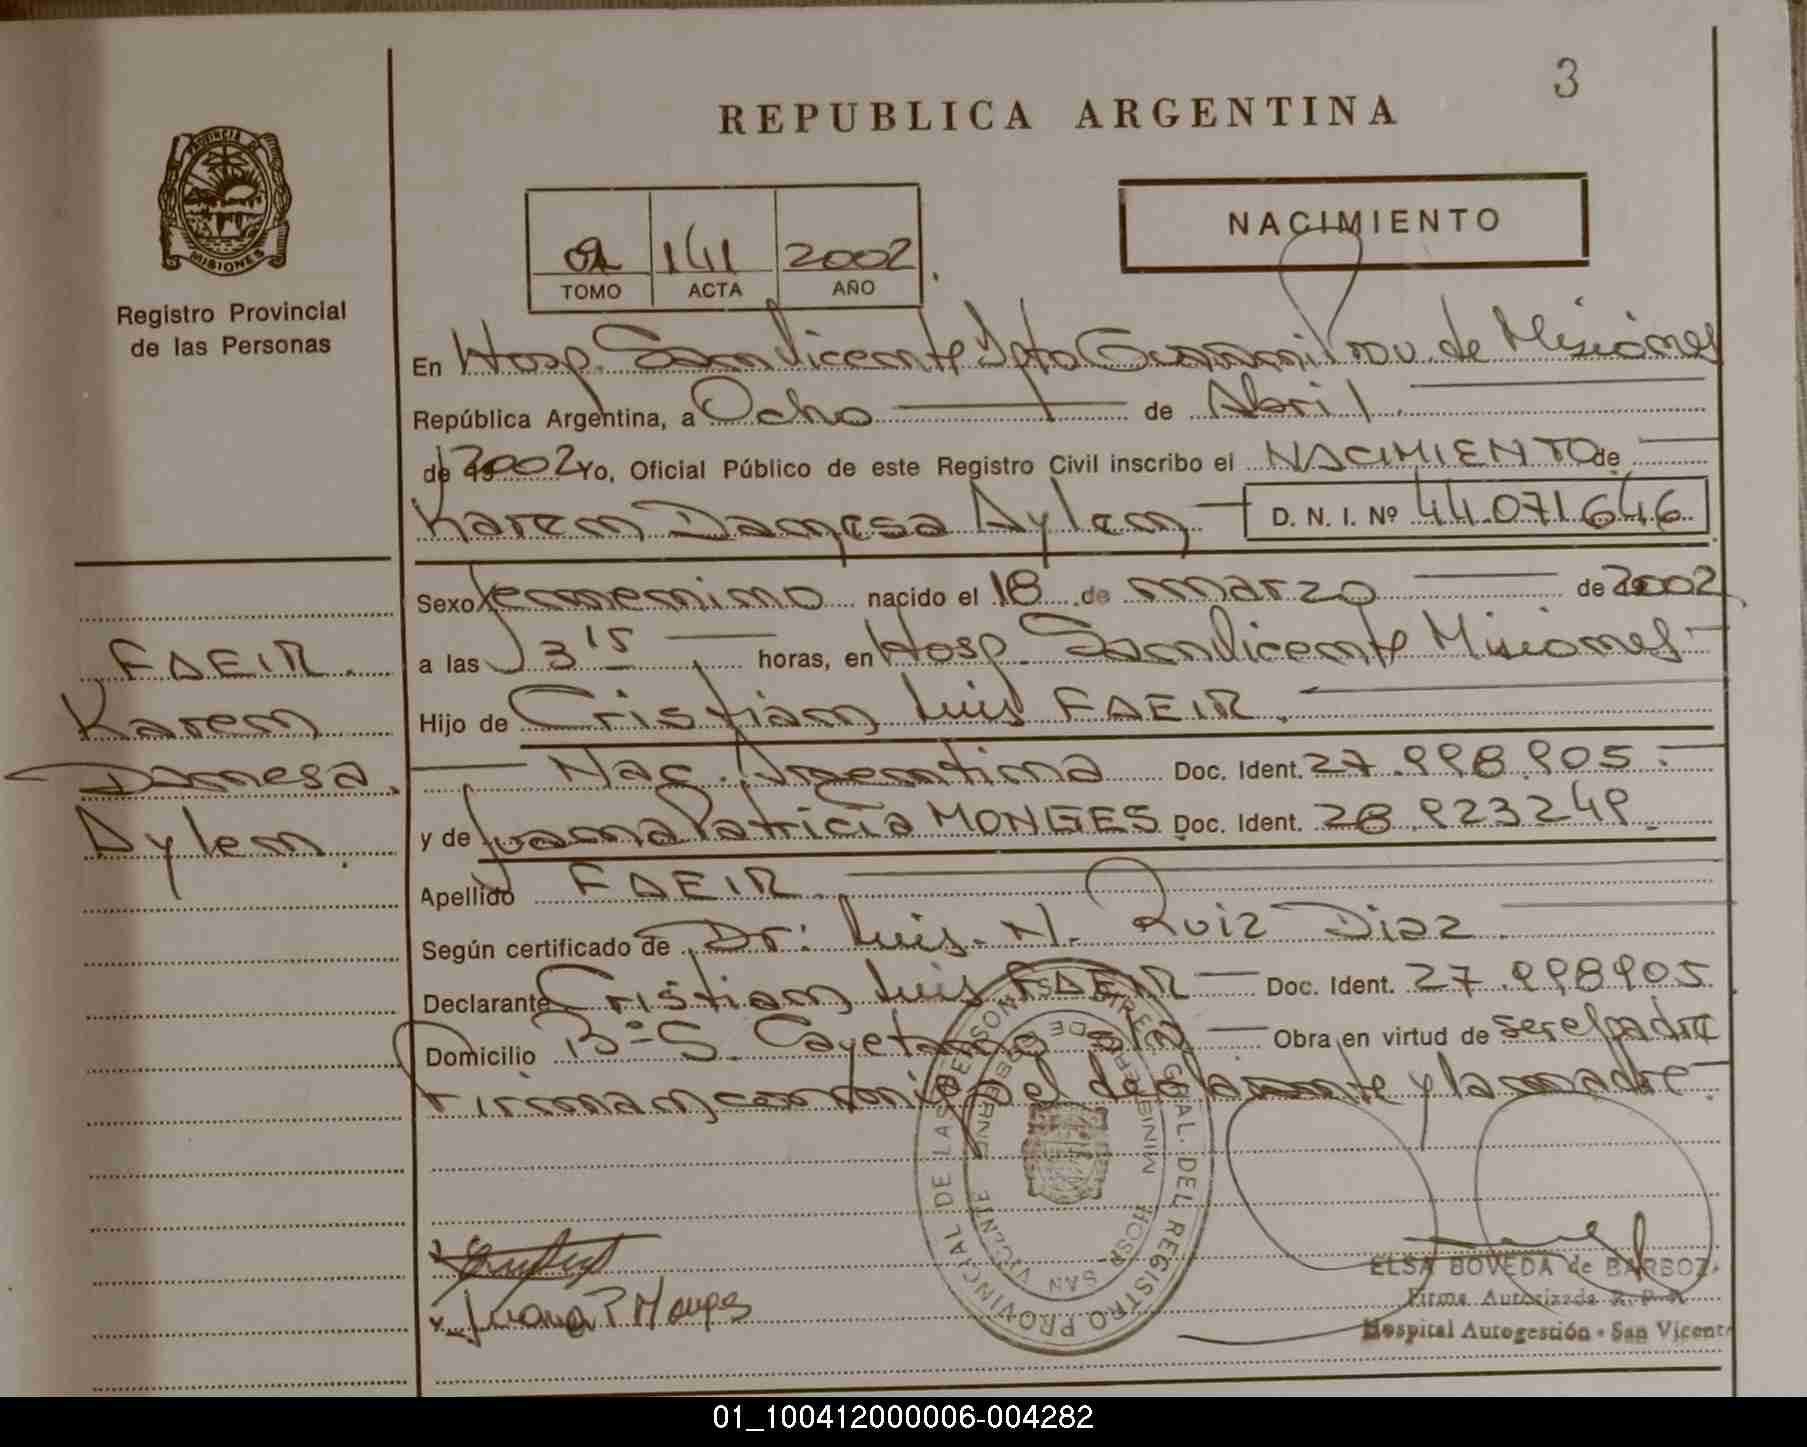 3
REPUBLICA ARGENTINA
PROVINCIA DE
MISIONES
Registro Provincial
de las Personas
NACIMIENTO
141 2002
TOMO ACTA AÑO
En Hosp. San Vicente Dpto Guarani Prov. de Misiones
República Argentina, a Ocho de Abril
de 2002 Yo, Oficial Público de este Registro Civil inscribo el NACIMIENTO de
Karen Danesa Aylen D. N. I. Nº 44.071.646
Sexo femenino nacido el 18 de marzo de 2002
a las 3 15 horas, en Hosp. San Vicente Misiones
Hijo de Cristian Luis FAEIR
Nac. Argentina Doc. Ident. 27.998.905
y de Juana Patricia MONGES Doc. Ident. 28.923249
Apellido FAEIR
Según certificado de Dr. Luis. N. Ruiz Diaz
Declarante Cristian Luis FAEIR Doc. Ident. 27.998905
Domicilio Bº S. Cayetano s/n Obra en virtud de ser el padre
Firman conmigo el declarante y la madre
FAEIR
Karen
Danesa
Aylen
DIREC. GRAL. DEL REGISTRO PROVINCIAL DE LAS PERSONAS
HOSP. SAN VICENTE
Juana P Monges
ELSA BOVEDA de BARBOZ
Firma Autorizada R. P. P.
Hospital Autogestión - San Vicente
01_100412000006-004282